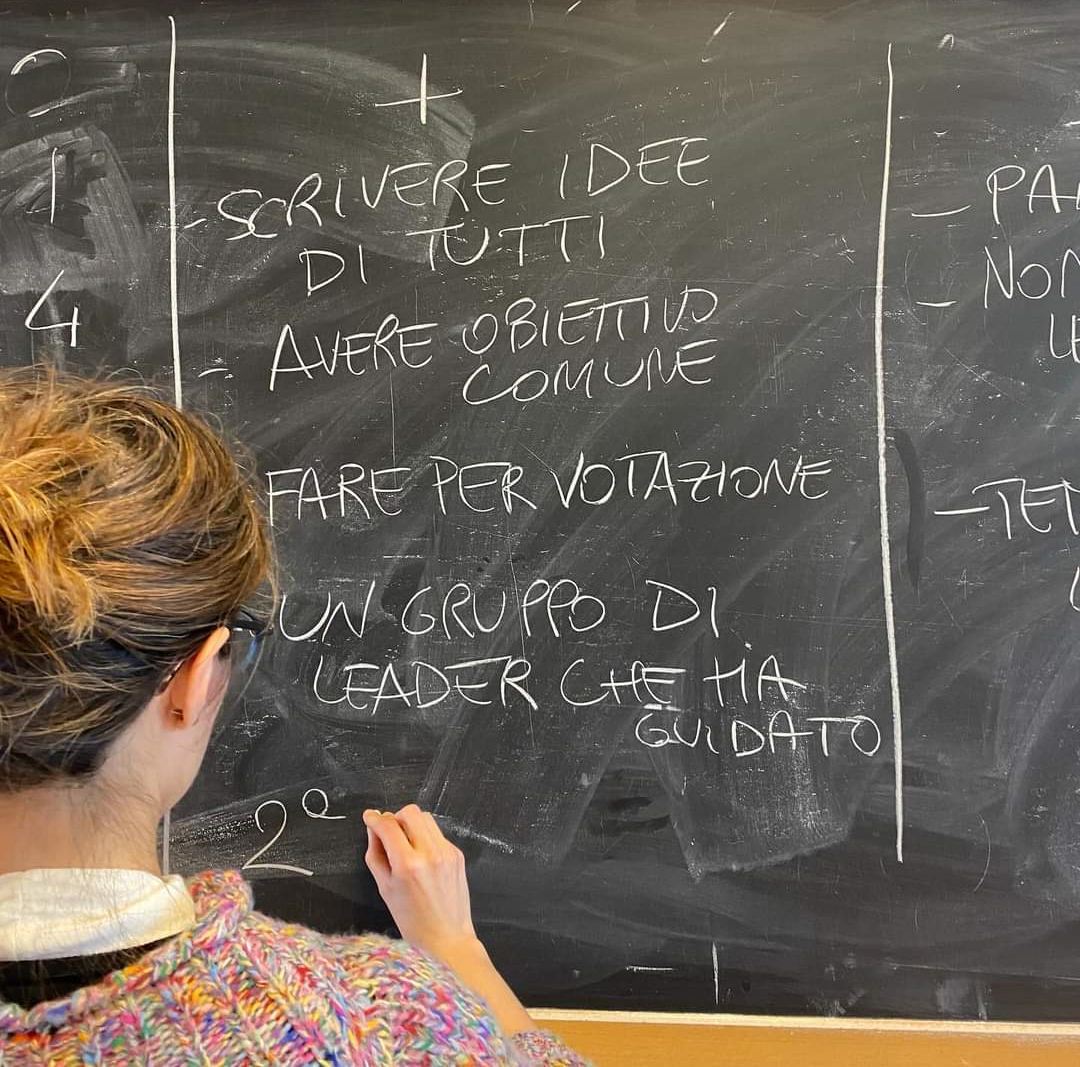 0
1
4
+
- SCRIVERE IDEE
DI TUTTI
- AVERE OBIETTIVO
COMUNE
FARE PER VOTAZIONE
UN GRUPPO DI
LEADER CHE HA
GUIDATO
2ª
- PA
- NON
LE
- TEN